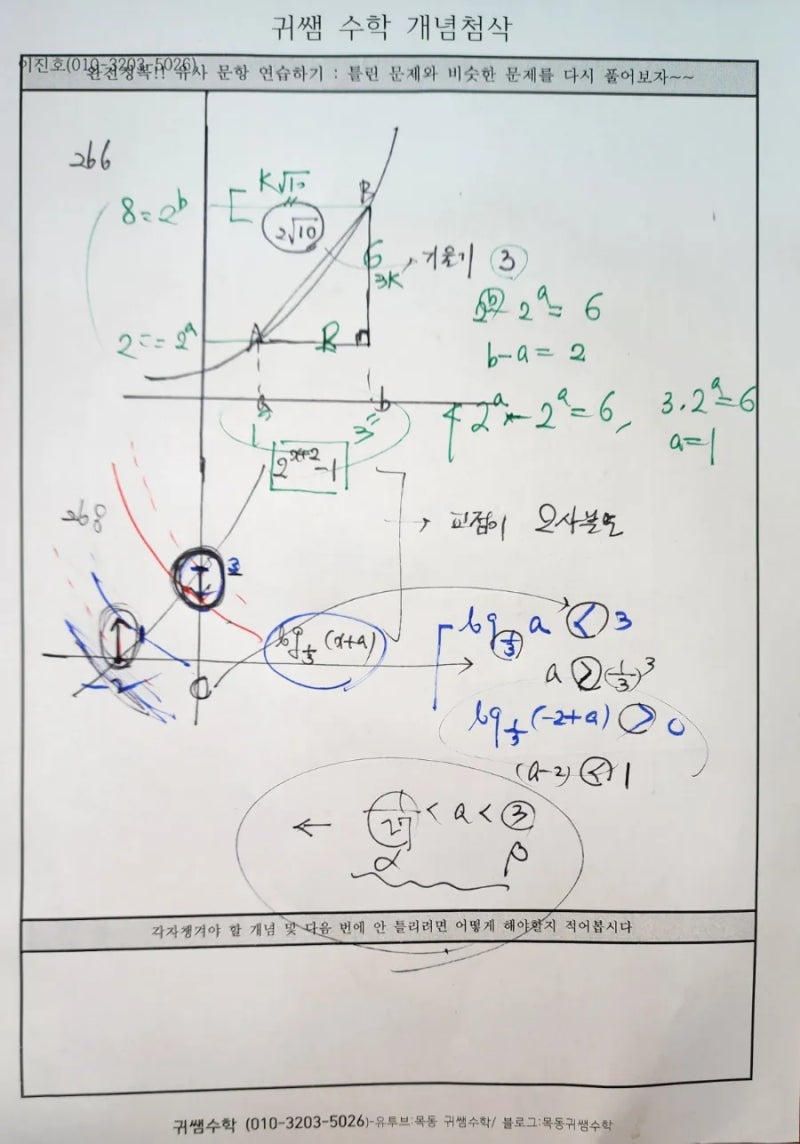 귀쌤 수학 개념첨삭
이진호(010-3203-5026)
완전정복!! 유사 문항 연습하기 : 틀린 문제와 비슷한 문제를 다시 풀어보자~~
266
8=2^b
K√10
2√10
B
6
3K
기울기 ③
2=2^a
A
2^b-2^a=6
b-a=2
a
b
1
3
4·2^a-2^a=6, 3·2^a=6
a=1
2^{x+2}-1
268
3
→ 교점이 2사분면
log_{1/3}(x+a)
-2
log_{1/3} a < 3
a > (1/3)^3
log_{1/3}(-2+a) > 0
(a-2) < 1
← 1/27 < a < ③
α β
각자챙겨야 할 개념 및 다음 번에 안 틀리려면 어떻게 해야할지 적어봅시다
귀쌤수학 (010-3203-5026)-유투브:목동 귀쌤수학/ 블로그:목동귀쌤수학